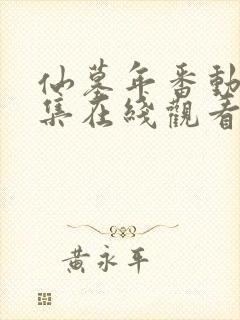 仙墓年番動
集在綫觀看
黃永平